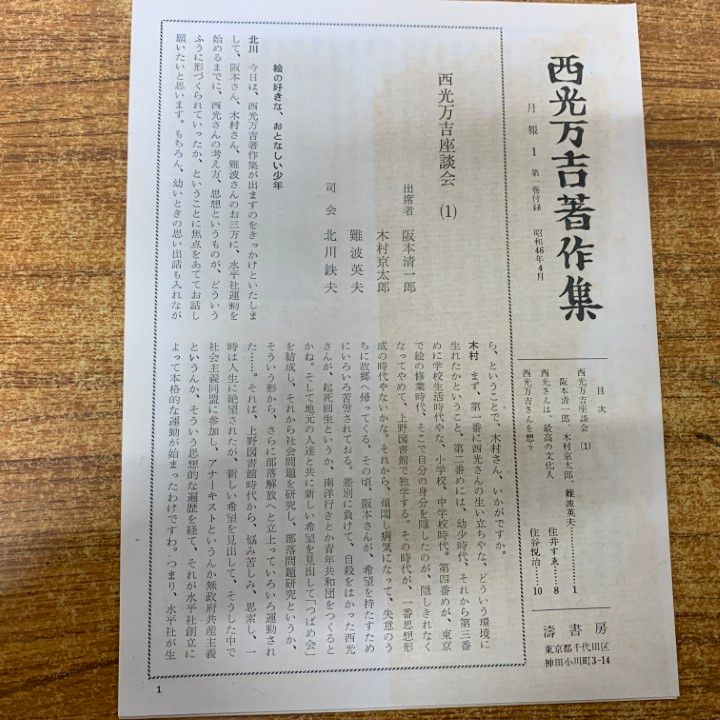 西光万吉著作集
月報 1 第一巻付録 昭和46年4月
目次
西光万吉座談会 (1)
阪本清一郎、木村京太郎、難波英夫…………1
西光さんは、最高の文化人 住井すゑ……8
西光万吉さんを想う 住谷悦治……10
濤書房
東京都千代田区
神田小川町3-14
西光万吉座談会 (1)
出席者 阪本清一郎
木村京太郎
難波英夫
司会 北川鉄夫
絵の好きな、おとなしい少年
北川 今日は、西光万吉著作集が出ますのをきっかけといたしま
して、阪本さん、木村さん、難波さんのお三方に、水平社運動を
始めるまでに、西光さんの考え方、思想というものが、どういう
ふうに形づくられていったか、ということに焦点をあててお話し
願いたいと思います。もちろん、幼いときの思い出話も入れなが
ら、ということで、木村さん、いかがですか。
木村 まず、第一番に西光さんの生い立ちやな、どういう環境に
生れたかということ、第二番めには、幼少時代、それから第三番
めに学校生活時代やな、小学校、中学校時代。第四番めが、東京
で絵の修業時代、そこで自分の身分を隠したのが、隠しきれなく
なってやめて、上野図書館で独学する。その時代が、一番思想形
成の時代やないかな。それから、煩悶し病気になって、失意のう
ちに故郷へ帰ってくる。その頃、阪本さんが、希望を持たすため
にいろいろ苦労されておる。差別に負けて、自殺をはかった西光
さんが、起死回生というか、南洋行きとか青年共和団をつくると
かね。そして地元の人達と共に新しい希望を見出して「つばめ会」
を結成し、それから社会問題を研究し、部落問題研究というか、
そういう形から、さらに部落解放へと立上っていろいろ運動され
た……。それは、上野図書館時代から、悩み苦しみ、思索し、一
時は人生に絶望されたが、新しい希望を見出して、そうした中で
社会主義同盟に参加し、アナーキストというんか無政府共産主義
というんか、そういう思想的な遍歴を経て、それが水平社創立に
よって本格的な運動が始まったわけですわ。つまり、水平社が生
1